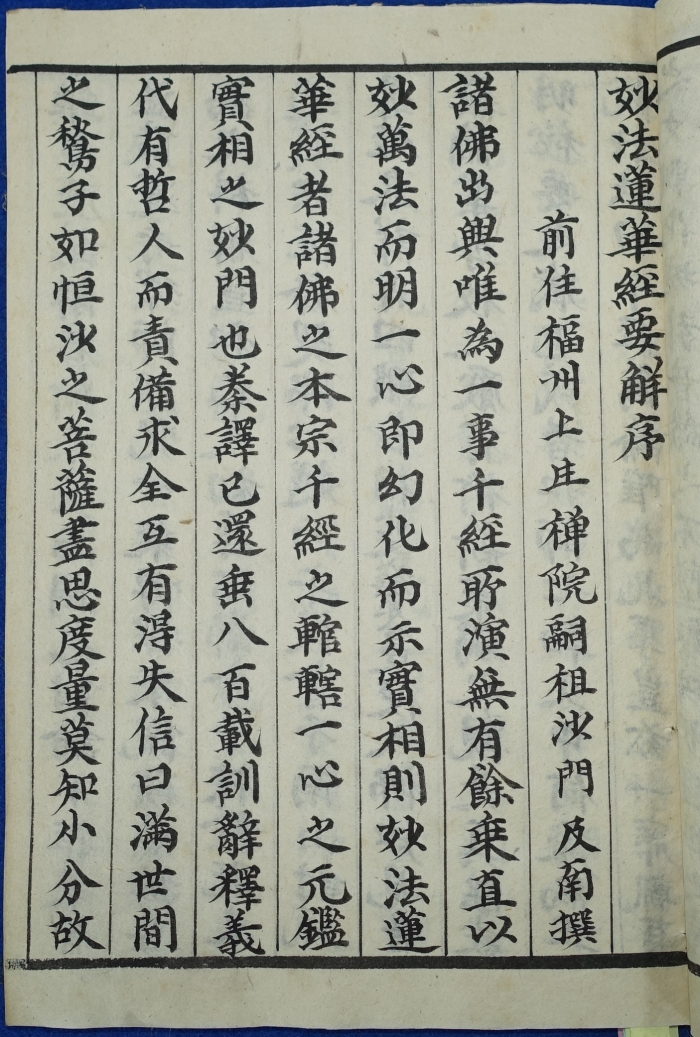 妙法蓮華經要解序
前住福州上庄禅院嗣祖沙門及南撰
諸佛出興唯為一事千經所演無有餘乗直以
妙萬法而明一心即幻化而示實相則妙法蓮
華經者諸佛之本宗千經之輨轄一心之元鑑
實相之妙門也秦譯已還垂八百載訓辭釋義
代有哲人而責備求全互有淂失信曰滿世間
之鶖子如恒沙之菩薩盡思度量莫知小分故